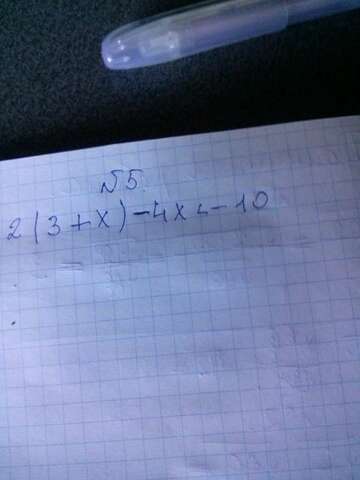 №5.
2(3+x)-4x<-10